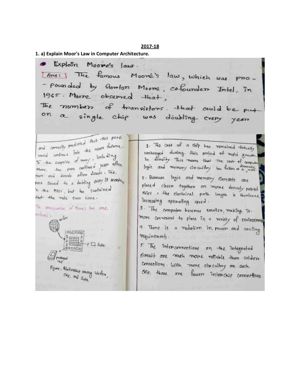 2017-18
1. a) Explain Moor's Law in Computer Architecture.
Explain Moore's law.
Ans: The famous Moore's law, which was pro-
-pounded by Gordon Moore, cofounder Intel, in
1965. Moore observed that,
The number of transistors that could be put
on a single chip was doubling every year
and correctly predicted that this pace
would continue into the near future.
To the surprise of many, including
Moore, the pace continued year after
year and decade after decade. The
pace slowed to a doubling every 18 months
in the 1970s, but has sustained
that rate ever since.
The consequences of Moore's law are
1. The cost of a chip has remained virtually
unchanged during this period of rapid growth
in density. This means that the cost of computer
logic and memory circuitry has fallen at a
2. Because logic and memory elements are
placed closer together on more densely packed
chips, the electrical path length is shortened
increasing operating speed.
3. The computer becomes smaller, making it
more convenient to place in a variety of environments
4. There is a reduction in power and cooling
requirements.
5. The interconnections on the integrated
circuit are much more reliable than solder
connections. With more circuitry on each
chip, there are fewer interchip connections